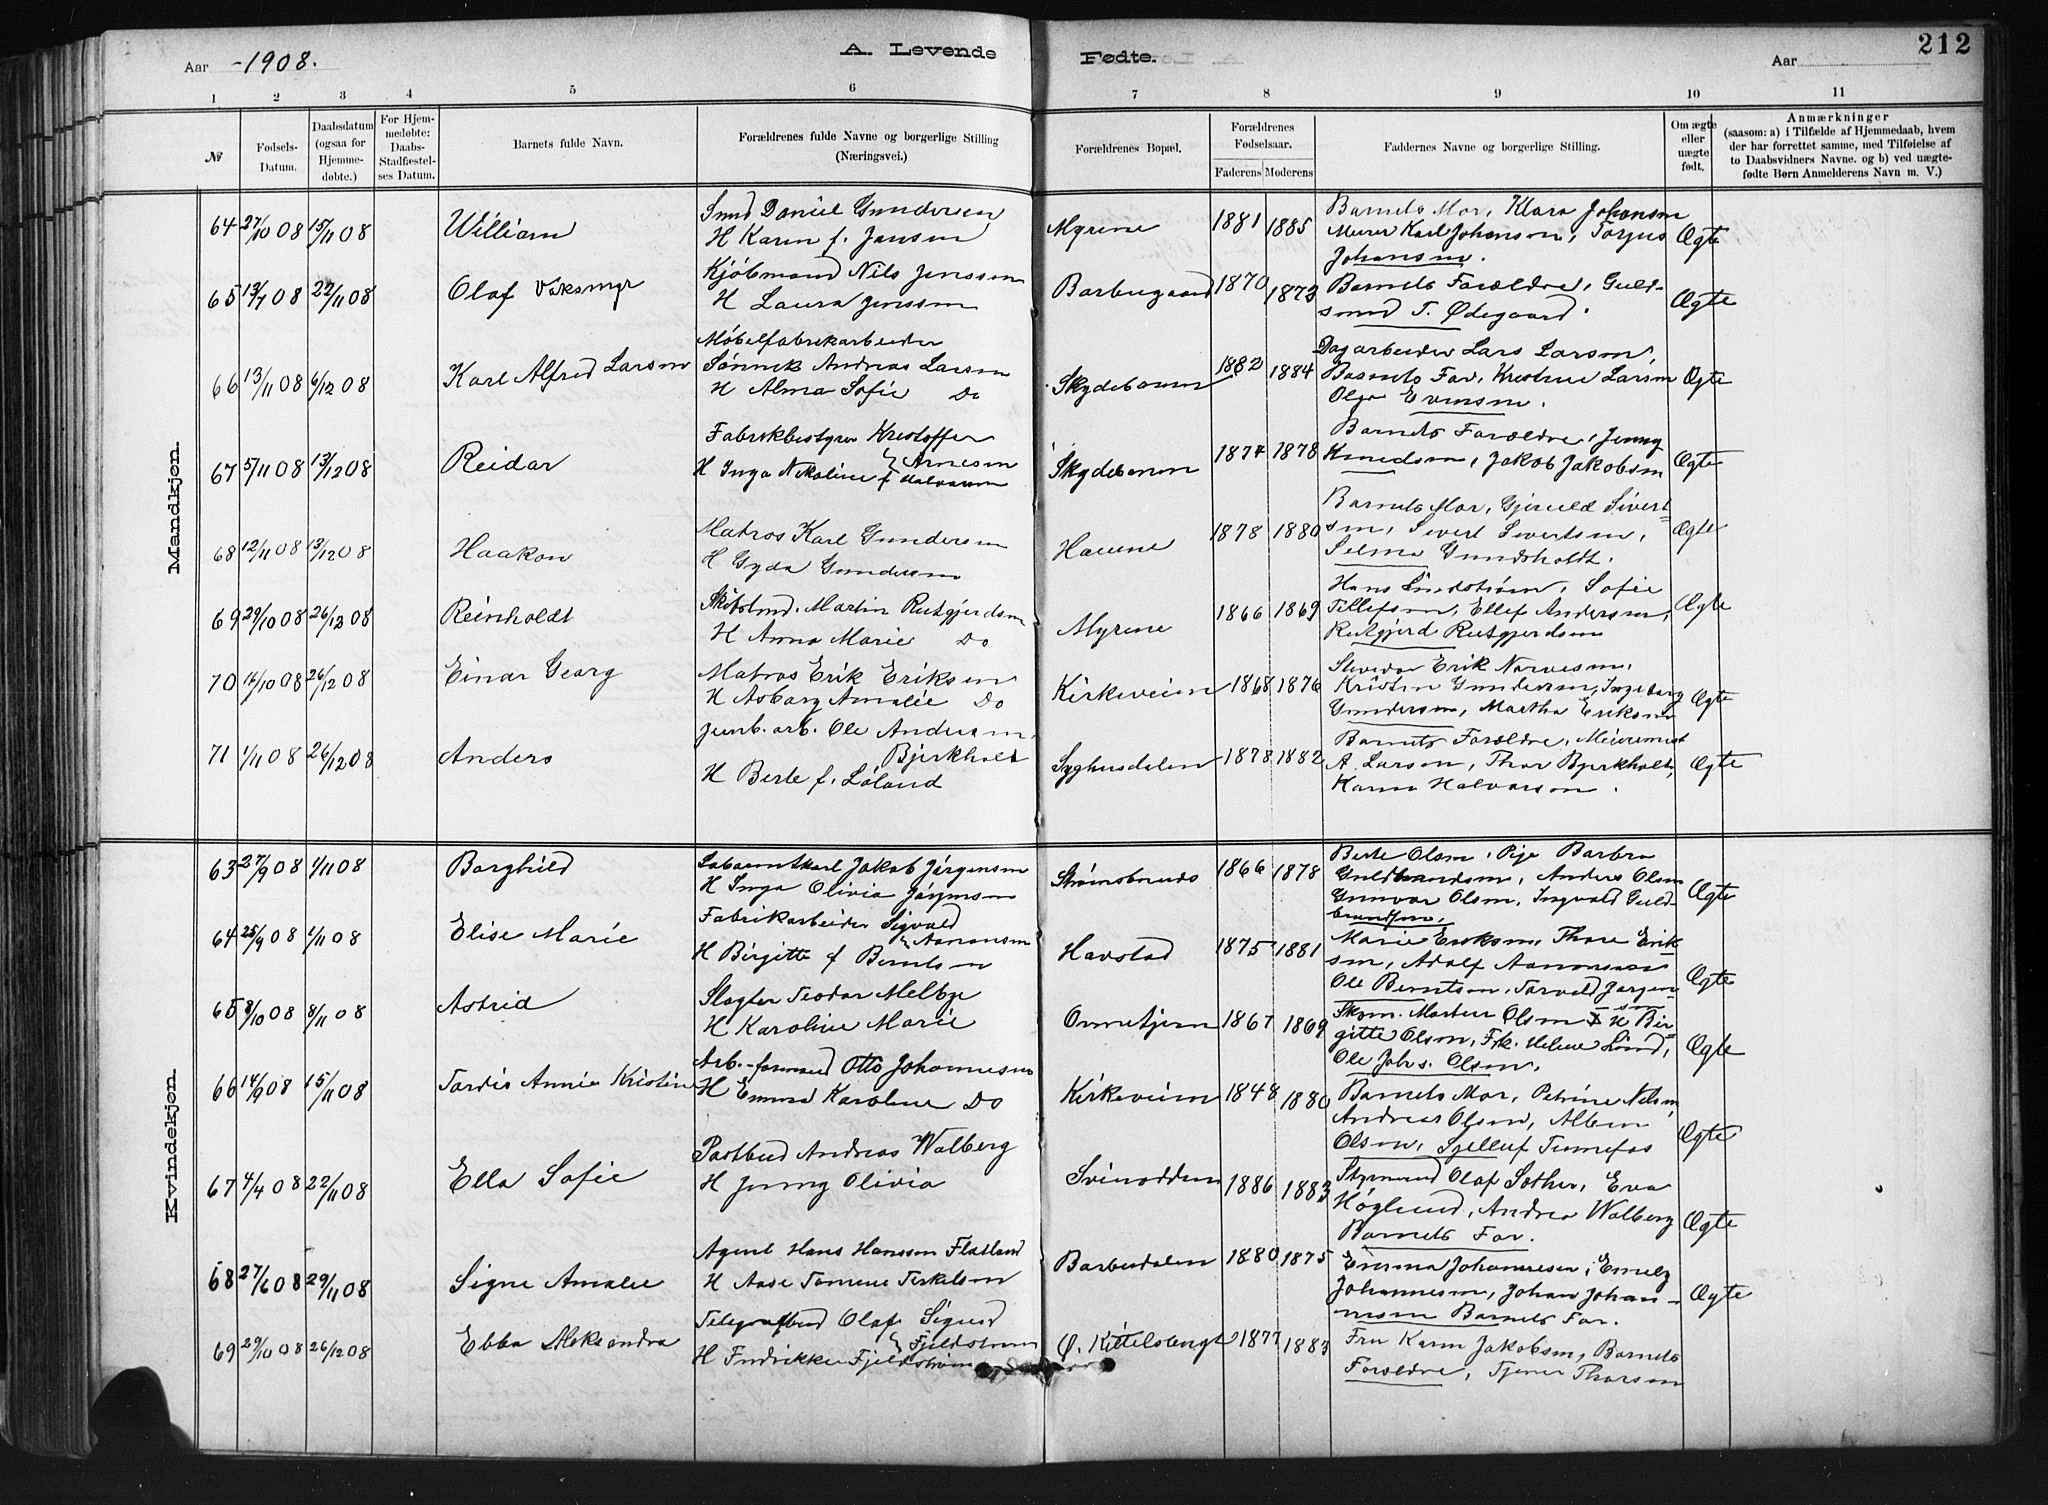 A. Levende Fødte.
212
Aar -1908.
Aar
1 2 3 4 5 6 7 8 9 10 11
№
Fødsels-Datum.
Daabsdatum (ogsaa for Hjemme-døbte.)
For Hjem-medøbte: Daabs-Stadfæstel-ses Datum.
Barnets fulde Navn.
Forældrenes fulde Navne og borgerlige Stilling (Næringsvei.)
Forældrenes Bopæl.
Forældrenes Fødselsaar.
Faderens Moderens
Faddernes Navne og borgerlige Stilling.
Om ægte eller uægte født.
Anmærkninger
(saasom: a) i Tilfælde af Hjemmedaab, hvem
der har forrettet samme, med Tilføielse af
to Daabsvidners Navne. og b) ved uægte-
fødte Børn Anmelderens Navn m. V.)
Mandkjøn.
64 27/10 08 15/11 08 William
Smed Daniel Gundersen
H Karen f. Jansen
Myrene 1881 1885
Barnets Mor, Klara Johansen
Murer Karl Johansen, Torjus
Johansen.
Ægte
65 13/7 08 22/11 08 Olaf
Kjøbmand Nils Jenssen
H Laura Jenssen
Barbugaard 1870 1873
Barnets Forældre, Guld-
smed T. Ødegaard.
Ægte
66 13/11 08 6/12 08 Karl Alfred Larsen
Møbelfabrikarbeider
Sønnik Andreas Larsen
H Alma Sofie Do
Skydebanen 1882 1884
Dagarbeider Lars Larsen,
Barnets Far, Kristine Larsen
Olga Evensen.
Ægte
67 5/11 08 13/12 08 Reidar
Fabrikbestyrer Kristoffer
Arnesen
H Inga Nikoline f Halvorsen
Skydebanen 1874 1878
Barnets Forældre, Jenny
Knudsen, Jakob Jakobsen
Ægte
68 12/11 08 13/12 08 Haakon
Matros Karl Gundersen
H Gyda Gundersen
Havene 1878 1880
Barnets Mor, Gjeruld Sivert-
sen, Sivert Sivertsen,
Selma Gundsholdt.
Ægte
69 29/10 08 26/12 08 Reinholdt
Skibstmd. Martin Rutgjerdsen
H Anna Marie Do
Myrene 1866 1869
Hans Lindstrøm, Sofie
Tellefsen, Ellef Andersen,
Rutgjerd Rutgjerdsen
Ægte
70 16/10 08 26/12 08 Einar Georg
Matros Erik Eriksen
H Asborg Amalie Do
Kirkeveien 1868 1876
Erik Narvesen,
Kristen Gundersen, Ingeborg
Gundersen, Martha Eriksen
Ægte
71 1/11 08 26/12 08 Anders
Jernb. arb. Ole Andersen
Bjerkholt
H Berte f. Løland
Syghusdalen 1878 1882
Barnets Forældre, Meiermest
A. Larsen, Thor Bjerkholt,
Karen Halvorsen.
Ægte
Kvindekjøn.
63 27/9 08 1/11 08 Borghild
Jakob Jörgensen
H Inga Olivia Jörgensen
Strømsbunds 1866 1878
Berte Olsen, Pige Barbra
Guldbrandsen, Anders Olsen
Gunvor Olsen, Ingvald Guld-
brandsen,
Ægte
64 25/9 08 1/11 08 Elise Marie
Fabrikarbeider Sigvald
Aanonsen
H Birgitte f Berntsen
Havstad 1875 1881
Marie Eriksen, Thore Erik-
sen, Adolf Aanonsen
Ole Berntsen, Torvald Jørgen-
sen
Ægte
65 8/10 08 8/11 08 Astrid
Slagter Teodor Melbye
H Karoline Marie
Ormetjern 1867 1869
Skom. Morten Olsen H Bir-
gitte Olsen, Frk. Helene Lund,
Ole Johs. Olsen.
Ægte
66 14/9 08 15/11 08 Tordis Annie Kristine
Arb.-formand Otto Johannesen
H Emma Karoline Do
Kirkeveien 1848 1880
Barnets Mor, Petrine Nilsen,
Andreas Olsen, Albin
Olsen, Sjelluf Tunnefos
Ægte
67 4/4 08 22/11 08 Ella Sofie
Postbud Andreas Walberg
H Jenny Olivia
Svinodden 1886 1883
Styrmand Olaf Sother, Eva
Høglund, Andrea Walberg
Barnets Far.
Ægte
68 27/6 08 29/11 08 Signe Amalie
Agent Hans Hansson Flatland
H Aase Tomine Terkelsen
Barbudalen 1880 1875
Emma Johannesen, Emely
Johannesen, Johan Johan-
nesen Barnets Far.
Ægte
69 29/10 08 26/12 08 Ebba Aleksandra
Telegrafbud Olaf Sigurd
Fjeldstrøm
H Fredrikke Fjeldstrøm
Ø. Kittelsbugt 1877 1883
Fru Karen Jakobsen, Barnets
Forældre, Tjener Thorsen